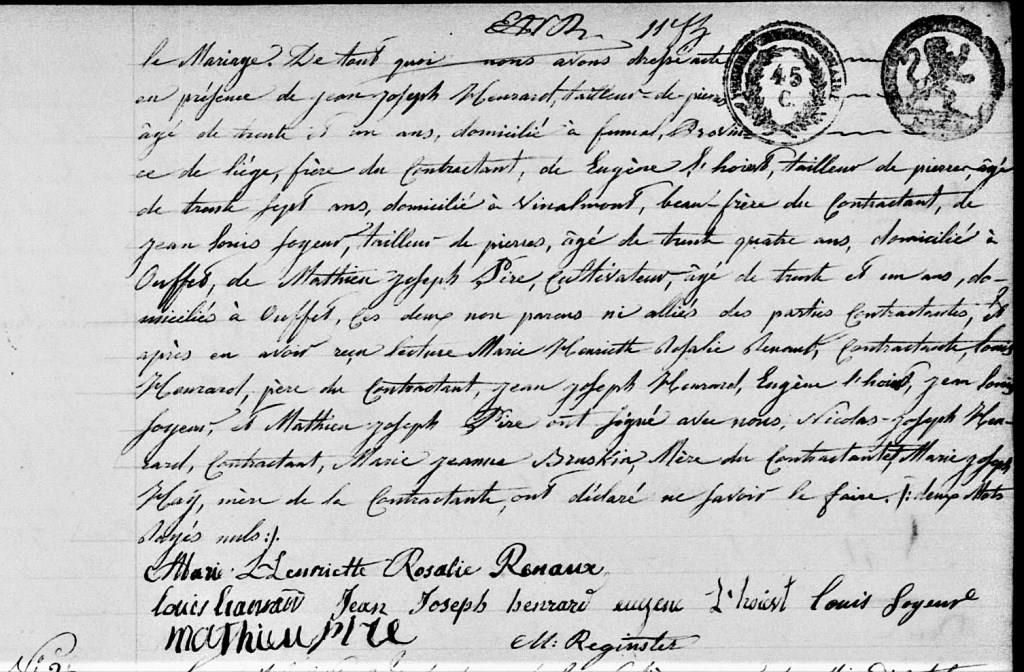 le Mariage. De tout quoi nous avons dressé acte
en présence de jean joseph Henrard, tailleur de pierres
45
C.
âgé de trente et un ans, domicilié à fumal, Provin
ce de liége, frère du Contractant, de Eugène L'hoist, tailleur de pierres âgé
de trente sept ans, domicilié à Vinalmont, beau-frère du Contractant, de
jean louis soyeur, tailleur de pierres, âgé de trente quatre ans, domicilié à
Ouffet, de Mathieu joseph Pire, Cultivateur, âgé de trente et un ans, do-
miciliés à Ouffet, Ces deux non parens ni alliés des parties Contractantes, Et
après en avoir reçu lecture Marie Henriette Rosalie Renault, Contractante, louis
Henrard, père du Contractant, jean joseph Henrard, Eugène l'hoist, jean louis
soyeur, et Mathieu joseph Pire ont signé avec nous, Nicolas-joseph Hen-
rard, Contractant, Marie jeanne Bruskin, Mère du Contractant et Marie joseph
Hay, mère de la Contractante, ont déclaré ne savoir le faire. /: deux Mots
Rayés nuls:/.
Marie Henriette Rosalie Renaux
louis henrard Jean Joseph henrard eugene L'hoist louis Soyeur
mathieu pire M: Reginster